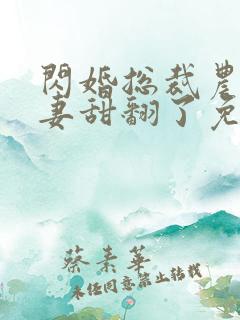 閃婚总裁農
妻甜翻了免
蔡素華
未经同意禁止转载